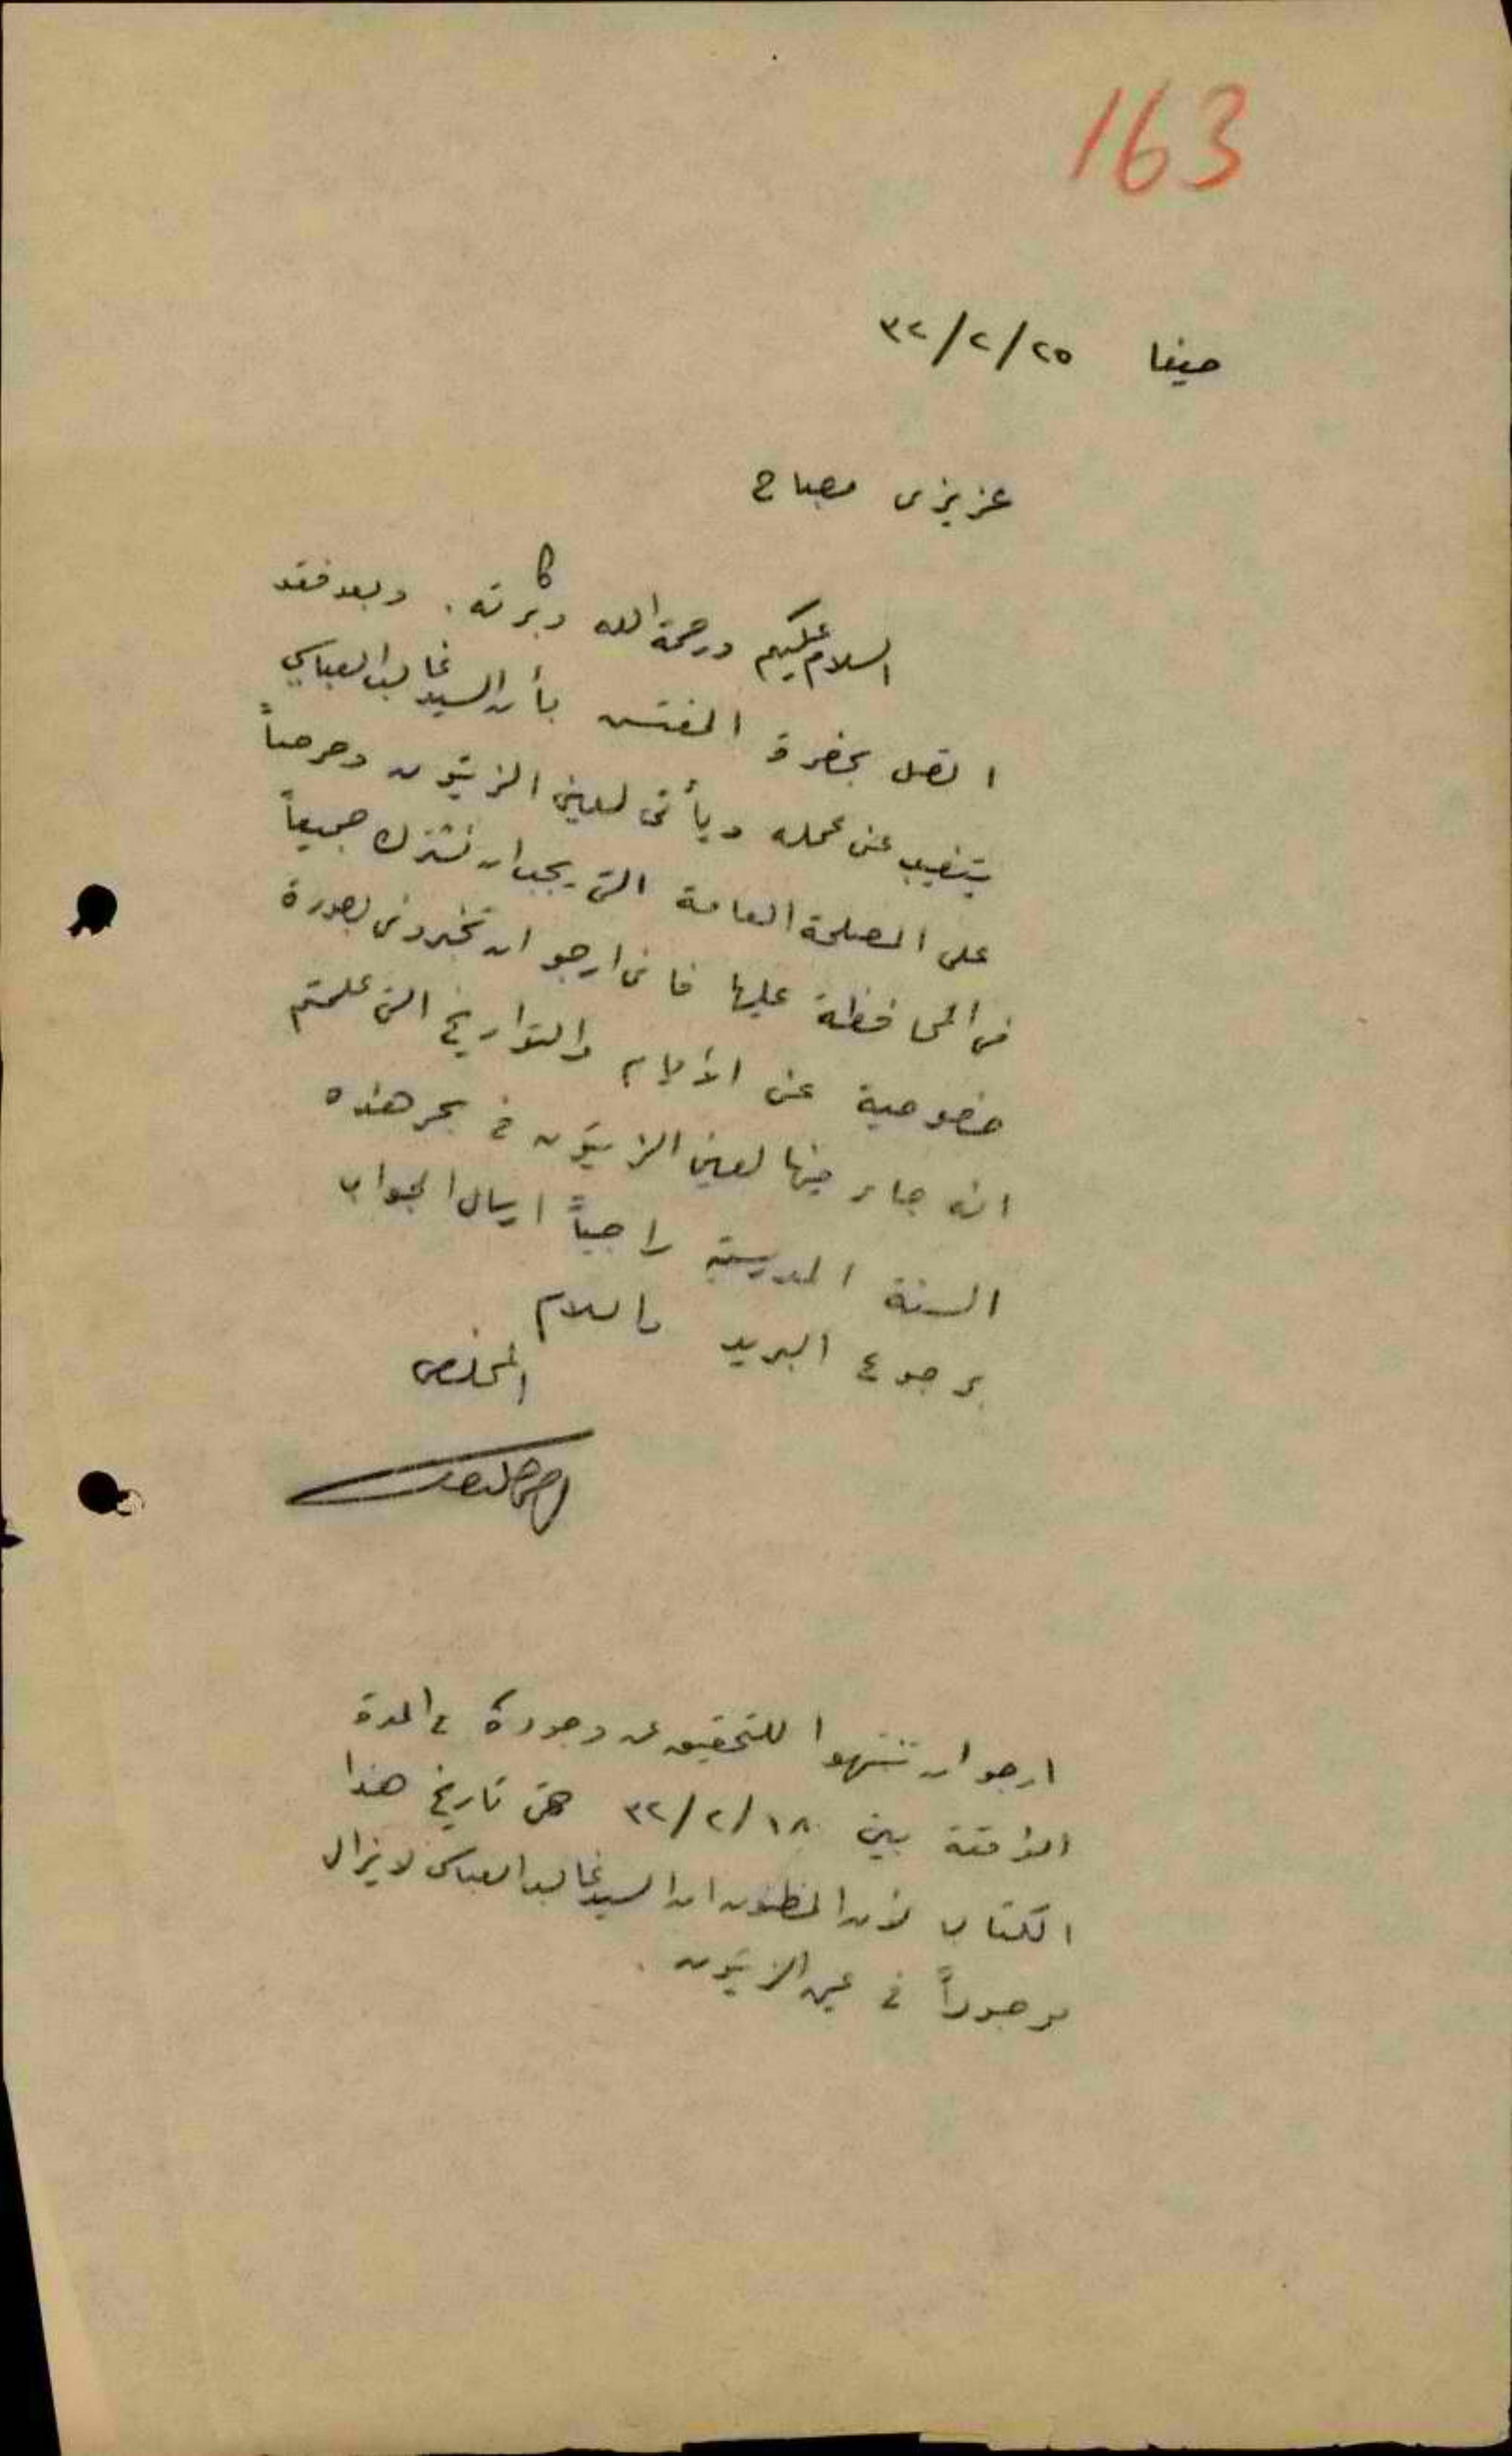 163
حيفا ٢٥/٢/٣٢
عزيزي مصباح
السلام عليكم ورحمة الله وبركاته. وبعد فقد
اتصل بحضرة المفتش بأن السيد غالب العباسي
يتغيب عن عمله ويأتي لعين الزيتون وحرصاً
على المصلحة العامة التي يجب ان نشترك جميعاً
في المحافظة عليها فاني ارجو ان تخبروني بصورة
خصوصية عن الأيام والتواريخ التي علمتم
انه جاء فيها لعين الزيتون في بحر هذه
السنة المدرسية راجياً ارسال الجواب
برجوع البريد والسلام
المخلص
ارجو ان تنتبهوا للتحقيق عن وجوده في المدة
الواقعة بين ١٨/٢/٣٢ حتى تاريخ هذا
الكتاب لأن المظنون ان السيد غالب العباسي لا يزال
موجوداً في عين الزيتون.